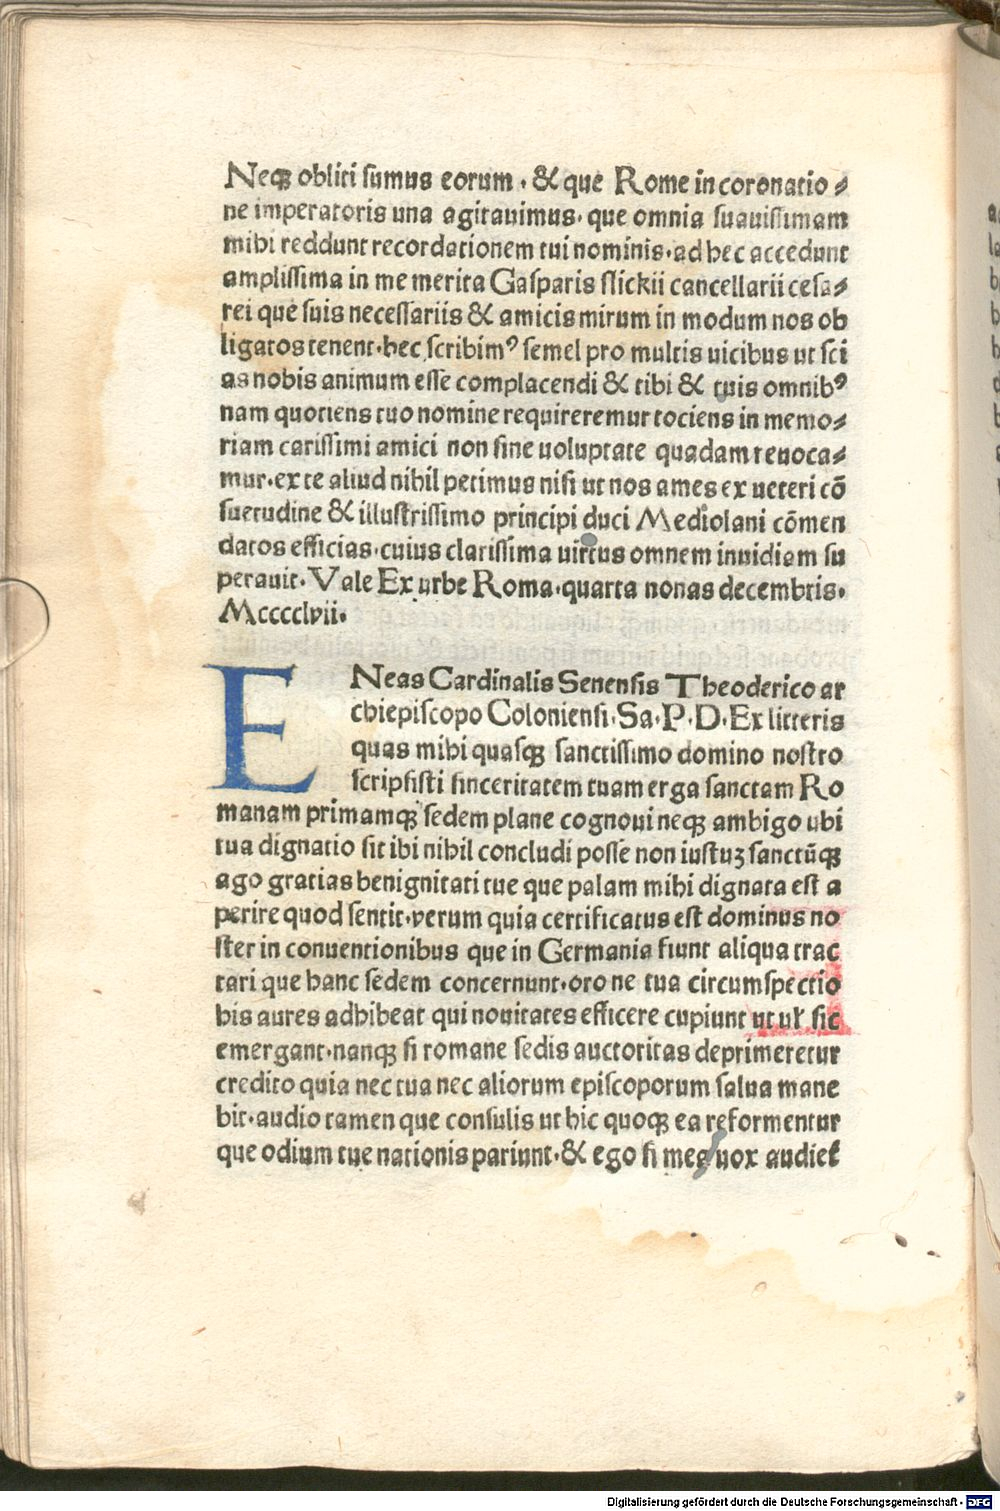 Neqꝫ obliti sumus eorum · & que Rome in coronatio⸗
ne imperatoris una agitauimus· que omnia suauissimam
mihi reddunt recordationem tui nominis· ad hec accedunt
amplissima in me merita Gasparis slickii cancellarii cesa⸗
rei que suis necessariis & amicis mirum in modum nos ob
ligatos tenent· hec scribimꝰ semel pro multis uicibus ut sci
as nobis animum esse complacendi & tibi & tuis omnibꝰ
nam quotiens tuo nomine requireremur tociens in memo⸗
riam carissimi amici non sine uoluptate quadam reuoca⸗
mur· ex te aliud nihil petimus nisi ut nos ames ex ueteri cō
suetudine & illustrissimo principi duci Mediolani cōmen
datos efficias· cuius clarissima uirtus omnem inuidiam su
perauit· Vale Ex urbe Roma· quarta nonas decembris·
Mcccclvii·
ENeas Cardinalis Senensis Theoderico ar
chiepiscopo Coloniensi· Sa· P· D· Ex litteris
quas mihi quasqꝫ sanctissimo domino nostro
scripsisti sinceritatem tuam erga sanctam Ro
manam primamqꝫ sedem plane cognoui neqꝫ ambigo ubi
tua dignatio sit ibi nihil concludi posse non iustuꝫ sanctūqꝫ
ago gratias benignitati tue que palam mihi dignata est a
perire quod sentit· verum quia certificatus est dominus no
ster in conuentionibus que in Germania fiunt aliqua trac
tari que hanc sedem concernunt· oro ne tua circumspectio
his aures adhibeat qui nouitates efficere cupiunt ut ul̕ sic
emergant· nanqꝫ si romane sedis auctoritas deprimeretur
credito quia nec tua nec aliorum episcoporum salua mane
bit· audio tamen que consulis ut hic quoqꝫ ea reformentur
que odium tue nationis pariunt· & ego si mea uox audiet̕
Digitalisierung gefördert durch die Deutsche Forschungsgemeinschaft - DFG